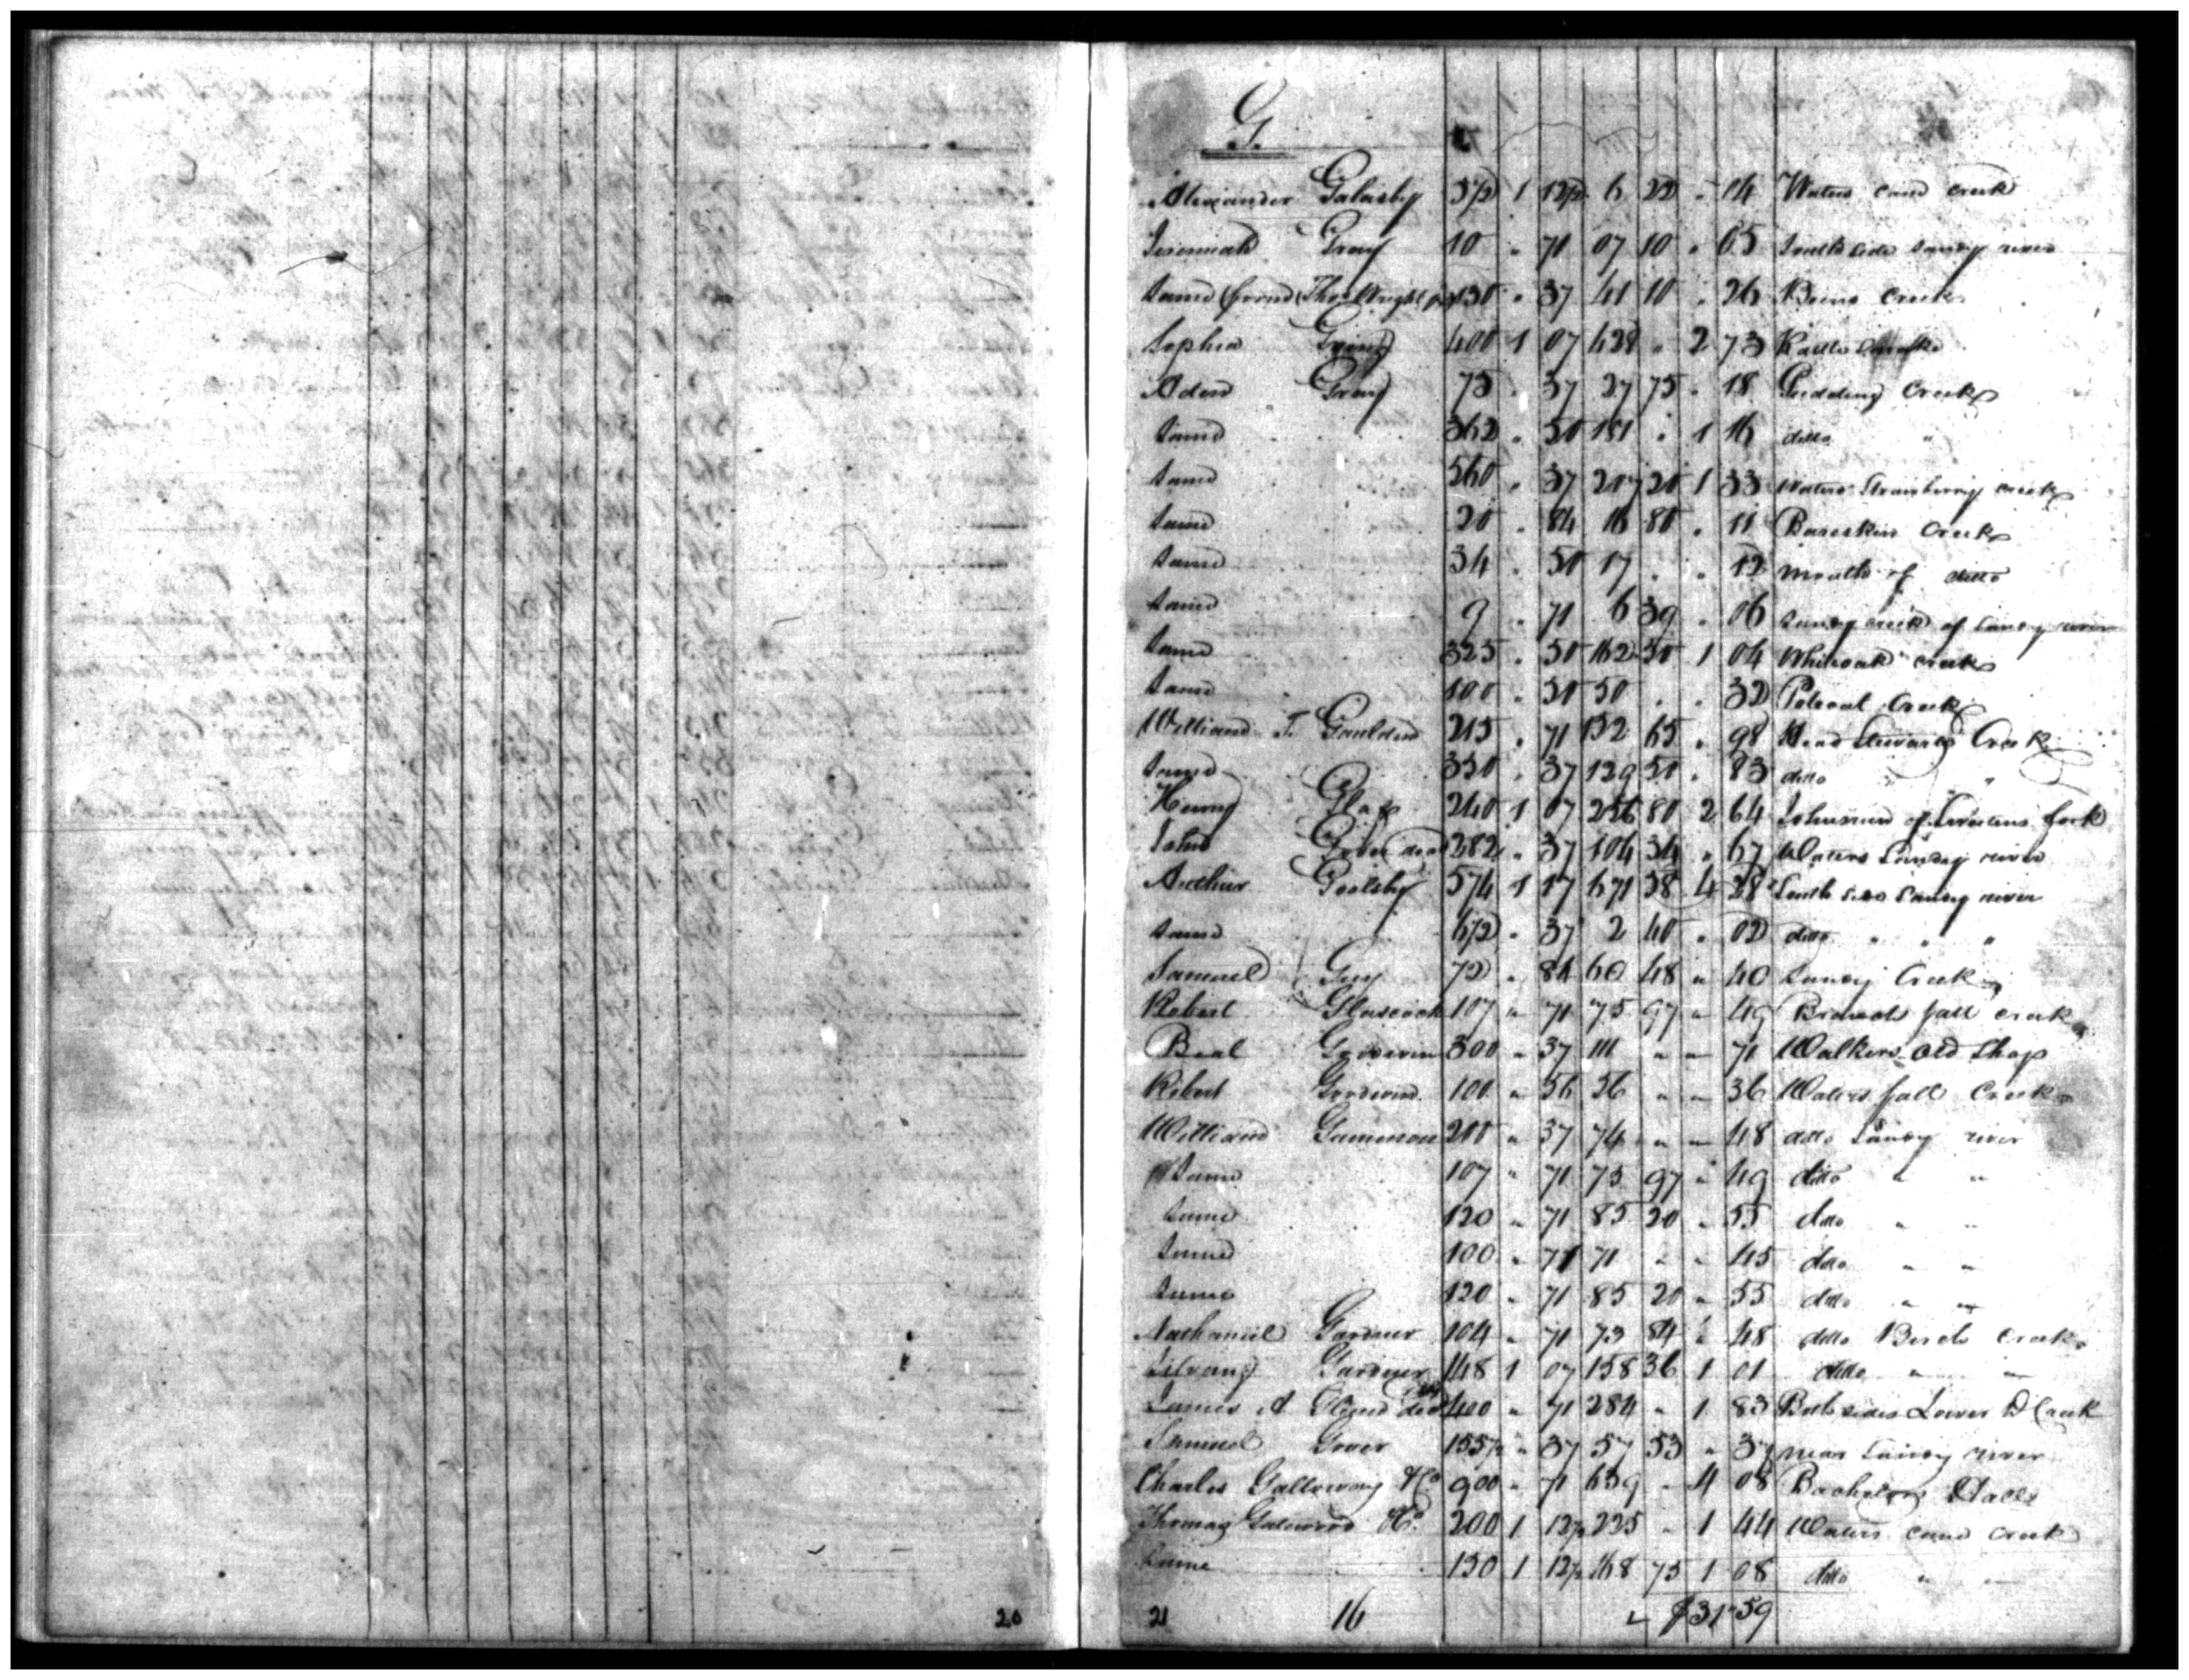 G.
Alexander Golasby 5 1/2 1 12 1/2 6 22 " 14 Waters cane creek
Jeremiah Gray 10 " 71 07 10 " 65 South side Sandy river
Same (from Thos Wright 130 " 37 41 10 " 26 Creek
Sophia 400 1 07 428 " 2 73
Aden Gray 75 " 37 27 75 " 18 Pudding Creek
Same 362 " 50 181 " 1 16 ditto "
Same 560 " 37 207 20 1 33 Waters Strawberry creek
Same 20 " 84 16 80 " 11 Bareskin Creek
Same 34 " 50 17 " " 12 mouth of ditto
Same 9 " 71 6 39 " 06 Sandy creek of Sandy river
Same 325 " 50 162 50 1 04 Whiteoak creek
Same 100 " 50 50 " " 32 Creek
William T. Gaulden 215 " 71 152 65 " 98 Head Stewarts Creek
Same 350 " 37 129 50 " 83 ditto " "
Henry Glass 240 1 07 256 80 2 64 Fork
John 282 " 37 104 34 " 67 Waters Sandy river
Arthur Goolsby 574 1 17 671 58 4 28 South side Sandy river
Same 6 1/2 " 37 2 40 " 02 ditto " " "
Samuel Guy 72 " 84 60 48 " 40 Sandy Creek
Robert Glascock 107 " 71 75 97 " 49 Branch fall creek
Beal Goodwin 300 " 37 111 " " 71 Walkers old Shop
Robert Goodwin 100 " 56 56 " " 36 Waters fall Creek
William Gammon 200 " 37 74 " " 48 ditto Sandy river
Same 107 " 71 75 97 " 49 ditto " "
Same 120 " 71 85 20 " 55 ditto " "
Same 100 " 71 71 " " 45 ditto " "
Same 120 " 71 85 20 " 55 ditto " "
Nathaniel Gardner 104 " 71 73 84 " 48 ditto Birch Creek
Silvany Gardner 148 1 07 158 36 1 01 ditto " "
James A Glenn decd 400 " 71 284 " 1 83 Both sides Lower D Creek
Samuel Grover 155 1/2 " 37 57 53 " 37 near Sandy river
Charles Galloway & Co 900 " 71 639 " 4 08 Bachelors Hall
Thomas Gatewood & Co. 200 1 12 1/2 225 " 1 44 Waters cane Creek
Same 150 1 12 1/2 168 75 1 08 ditto " "
20 21 16 $31 59